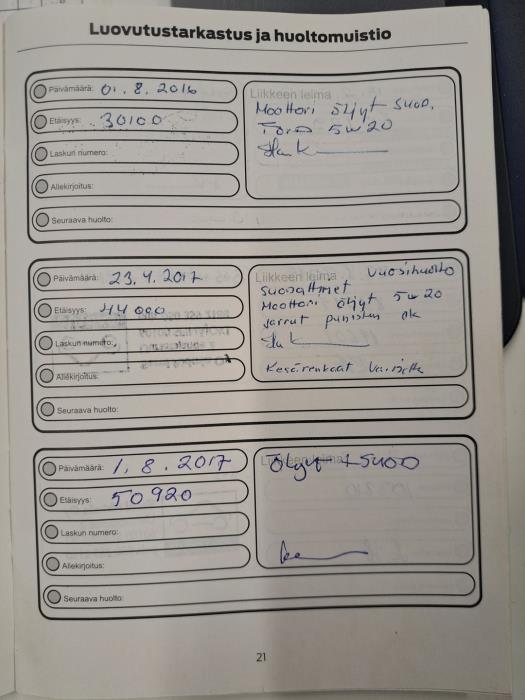 Luovutustarkastus ja huoltomuistio
Päivämäärä: 01.8.2016
Etäisyys: 30100
Laskun numero:
Allekirjoitus:
Seuraava huolto:
Liikkeen leima
Moottori öljyt suod.
5w20
Päivämäärä: 23.4.2017
Etäisyys: 44000
Laskun numero:
Allekirjoitus:
Seuraava huolto:
Liikkeen leima Vuosihuolto
Suodattimet
Moottori öljyt 5w20
Jarrut ok
Kesärenkaat
Päivämäärä: 1.8.2017
Etäisyys: 50920
Laskun numero:
Allekirjoitus:
Seuraava huolto:
Liikkeen leima
Öljyt + suod
21